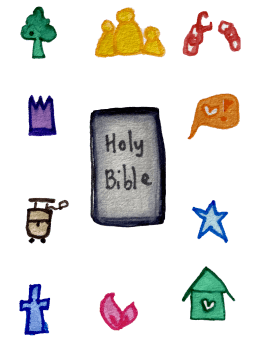 Holy
Bible